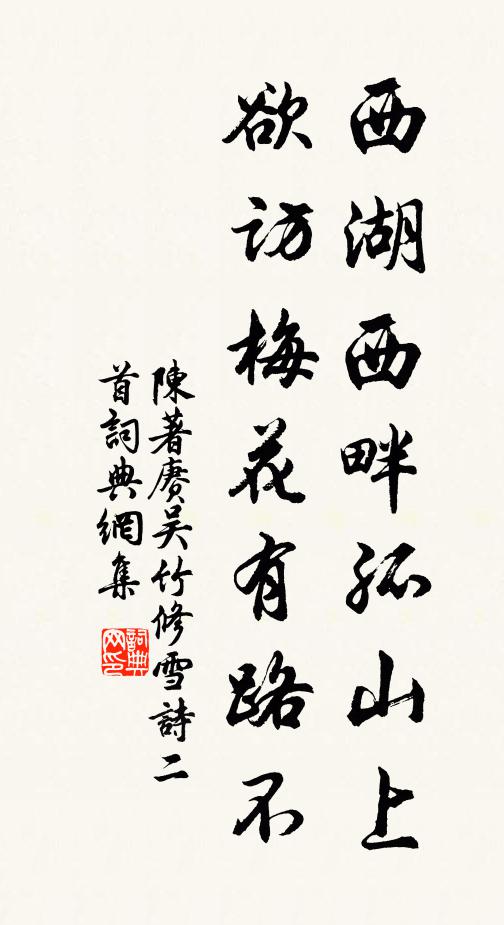 西湖西畔孤山上
欲訪梅花有路不
陳著賡吳竹修雪詩二
首詞典網集
詞典
网印